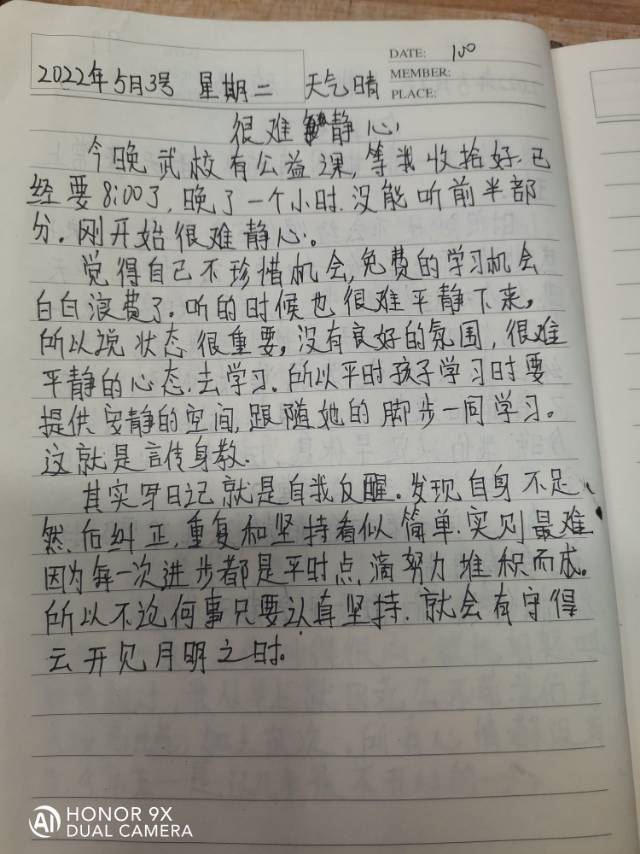 DATE: 100
MEMBER:
PLACE:
2022年5月3号 星期二 天气晴
很难静心
今晚武校有公益课,等我收拾好.已
经要8:00了,晚了一个小时.没能听前半部
分.刚开始很难静心.
觉得自己不珍惜机会,免费的学习机会
白白浪费了.听的时候也很难平静下来,
所以说状态很重要,没有良好的氛围,很难
平静的心态.去学习.所以平时孩子学习时要
提供安静的空间,跟随她的脚步一同学习.
这就是言传身教.
其实写日记就是自我反醒.发现自身不足、
然后纠正,重复和坚持看似简单.实则最难
因为每一次进步都是平时点滴努力堆积而成.
所以不论何事只要认真坚持.就会有守得
云开见月明之时.
HONOR 9X
DUAL CAMERA